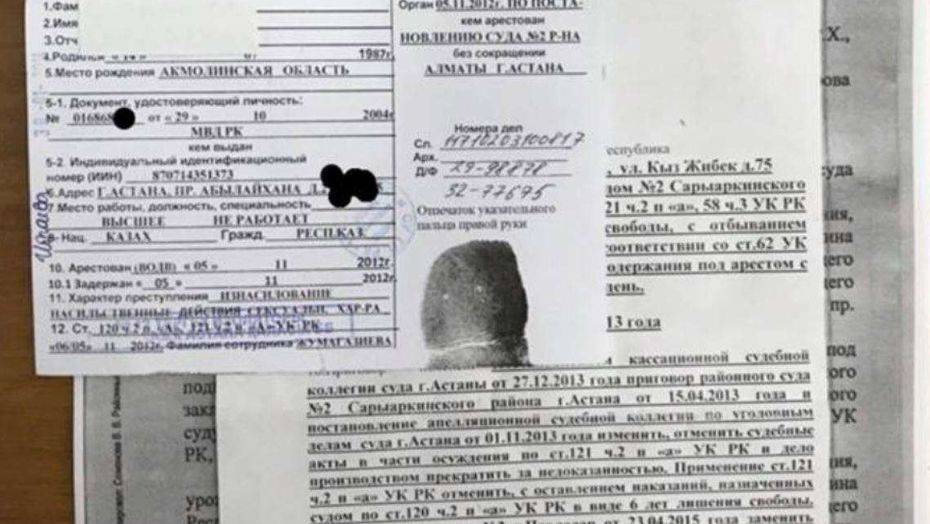 1.Фам
2.Имя
3.Отч
4.Родился « 14 » 07 1987г.
5.Место рождения АКМОЛИНСКАЯ ОБЛАСТЬ
5-1. Документ, удостоверяющий личность:
№ 016868 от « 29 » 10 2004г
МВД РК
кем выдан
5-2. Индивидуальный идентификационный
номер (ИИН) 870714351373
6.Адрес Г.АСТАНА, ПР. АБЫЛАЙХАНА Д.
7.Место работы, должность, специальность
ВЫСШЕЕ НЕ РАБОТАЕТ
8- Нац. КАЗАХ Гражд. РЕСП.КАЗ.
10. Арестован (ВОДВ) « 05 » 11 2012г.
10.1 Задержан « 05 » 11 2012г.
11. Характер преступления ИЗНАСИЛОВАНИЕ
НАСИЛЬСТВЕННЫЕ ДЕЙСТВИЯ СЕКСУАЛЬН. ХАР-РА
12. Ст. 120 ч.2 п «А», 121 ч.2 п «А» УК РК
«06/05» 11 2012г. Фамилия сотрудника ЖУМАГАЗИЕВА
Орган 05.11.2012г. ПО ПОСТА-
кем арестован
НОВЛЕНИЮ СУДА №2 Р-НА
без сокращении
АЛМАТЫ Г.АСТАНА
Номера дел
Сл. 11710203100817
Арх.
Д/Ф 29-98878
52-77675
Отпечаток указательного
пальца правой руки
еспублика
, ул. Кыз Жибек д.75
дом №2 Сарыаркинского
21 ч.2 п «а», 58 ч.3 УК РК
свободы, с отбыванием
оответствии со ст.62 УК
одержания под арестом с
день.
13 года
кассационной судебной
коллегии суда г.Астаны от 27.12.2013 года приговор районного суда
№2 Сарыаркинского района г.Астана от 15.04.2013 года и
постановление апелляционной судебной коллегии по уголовным
делам суда г.Астана от 01.11.2013 года изменить, отменить судебные
акты в части осуждения по ст.121 ч.2 п «а» УК РК и дело
производством прекратить за недоказанностью. Применение ст.121
ч.2 п «а» УК РК отменить, с оставлением наказаний, назначенных
судом по ст.120 ч.2 п «а» УК РК в виде 6 лет лишения свободы.
от 23.04.2015 года заменить
Х.,
ова
суда
его
пр.
под
ого
ого
УК
его
под
закл
суд
РК,
уро
Респ